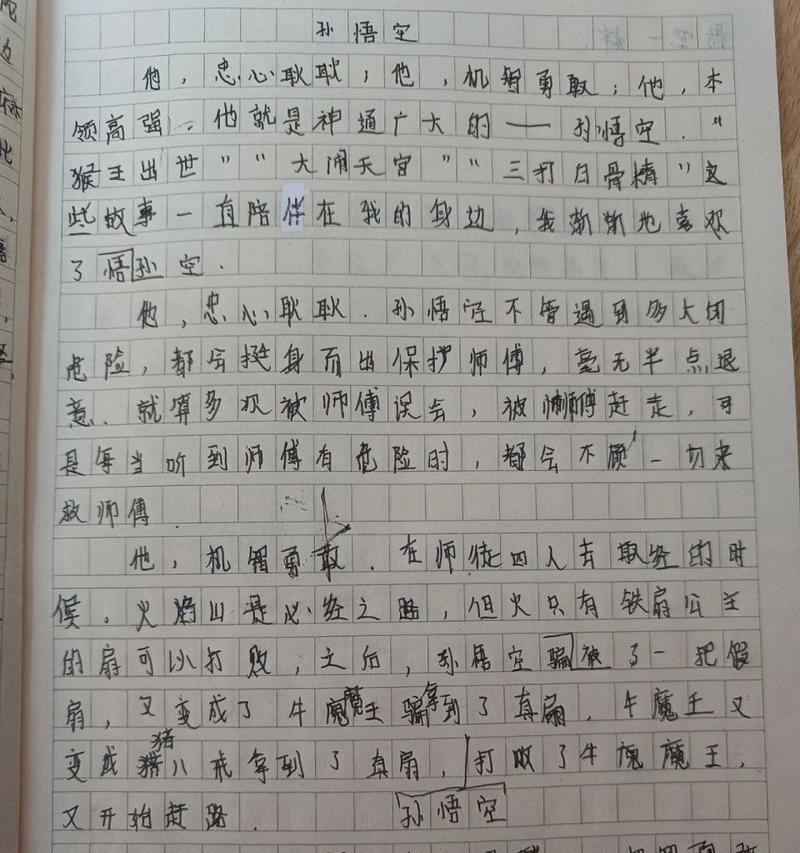 孙悟空
他，忠心耿耿；他，机智勇敢；他，本
领高强。他就是神通广大的——孙悟空．“
猴王出世”“大闹天宫”“三打白骨精”这
些故事一直陪伴在我的身边，我渐渐地喜欢
了悟孙空．
他，忠心耿耿．孙悟空不管遇到多大的
危险，都会挺身而出保护师傅，毫无半点退
意．就算多次被师傅误会，被师傅赶走，可
是每当听到师傅有危险时，都会不顾一切来
救师傅．
他，机智勇敢．在师徒四人去取经的时
候，火焰山是必经之路，但火只有铁扇公主
的扇可以打败，之后，孙悟空骗被了一把假
扇，又变成了牛魔王骗拿到了真扇．牛魔王又
变成猪八戒拿到了真扇，打败了牛魔王，
又开始赶路．孙悟空